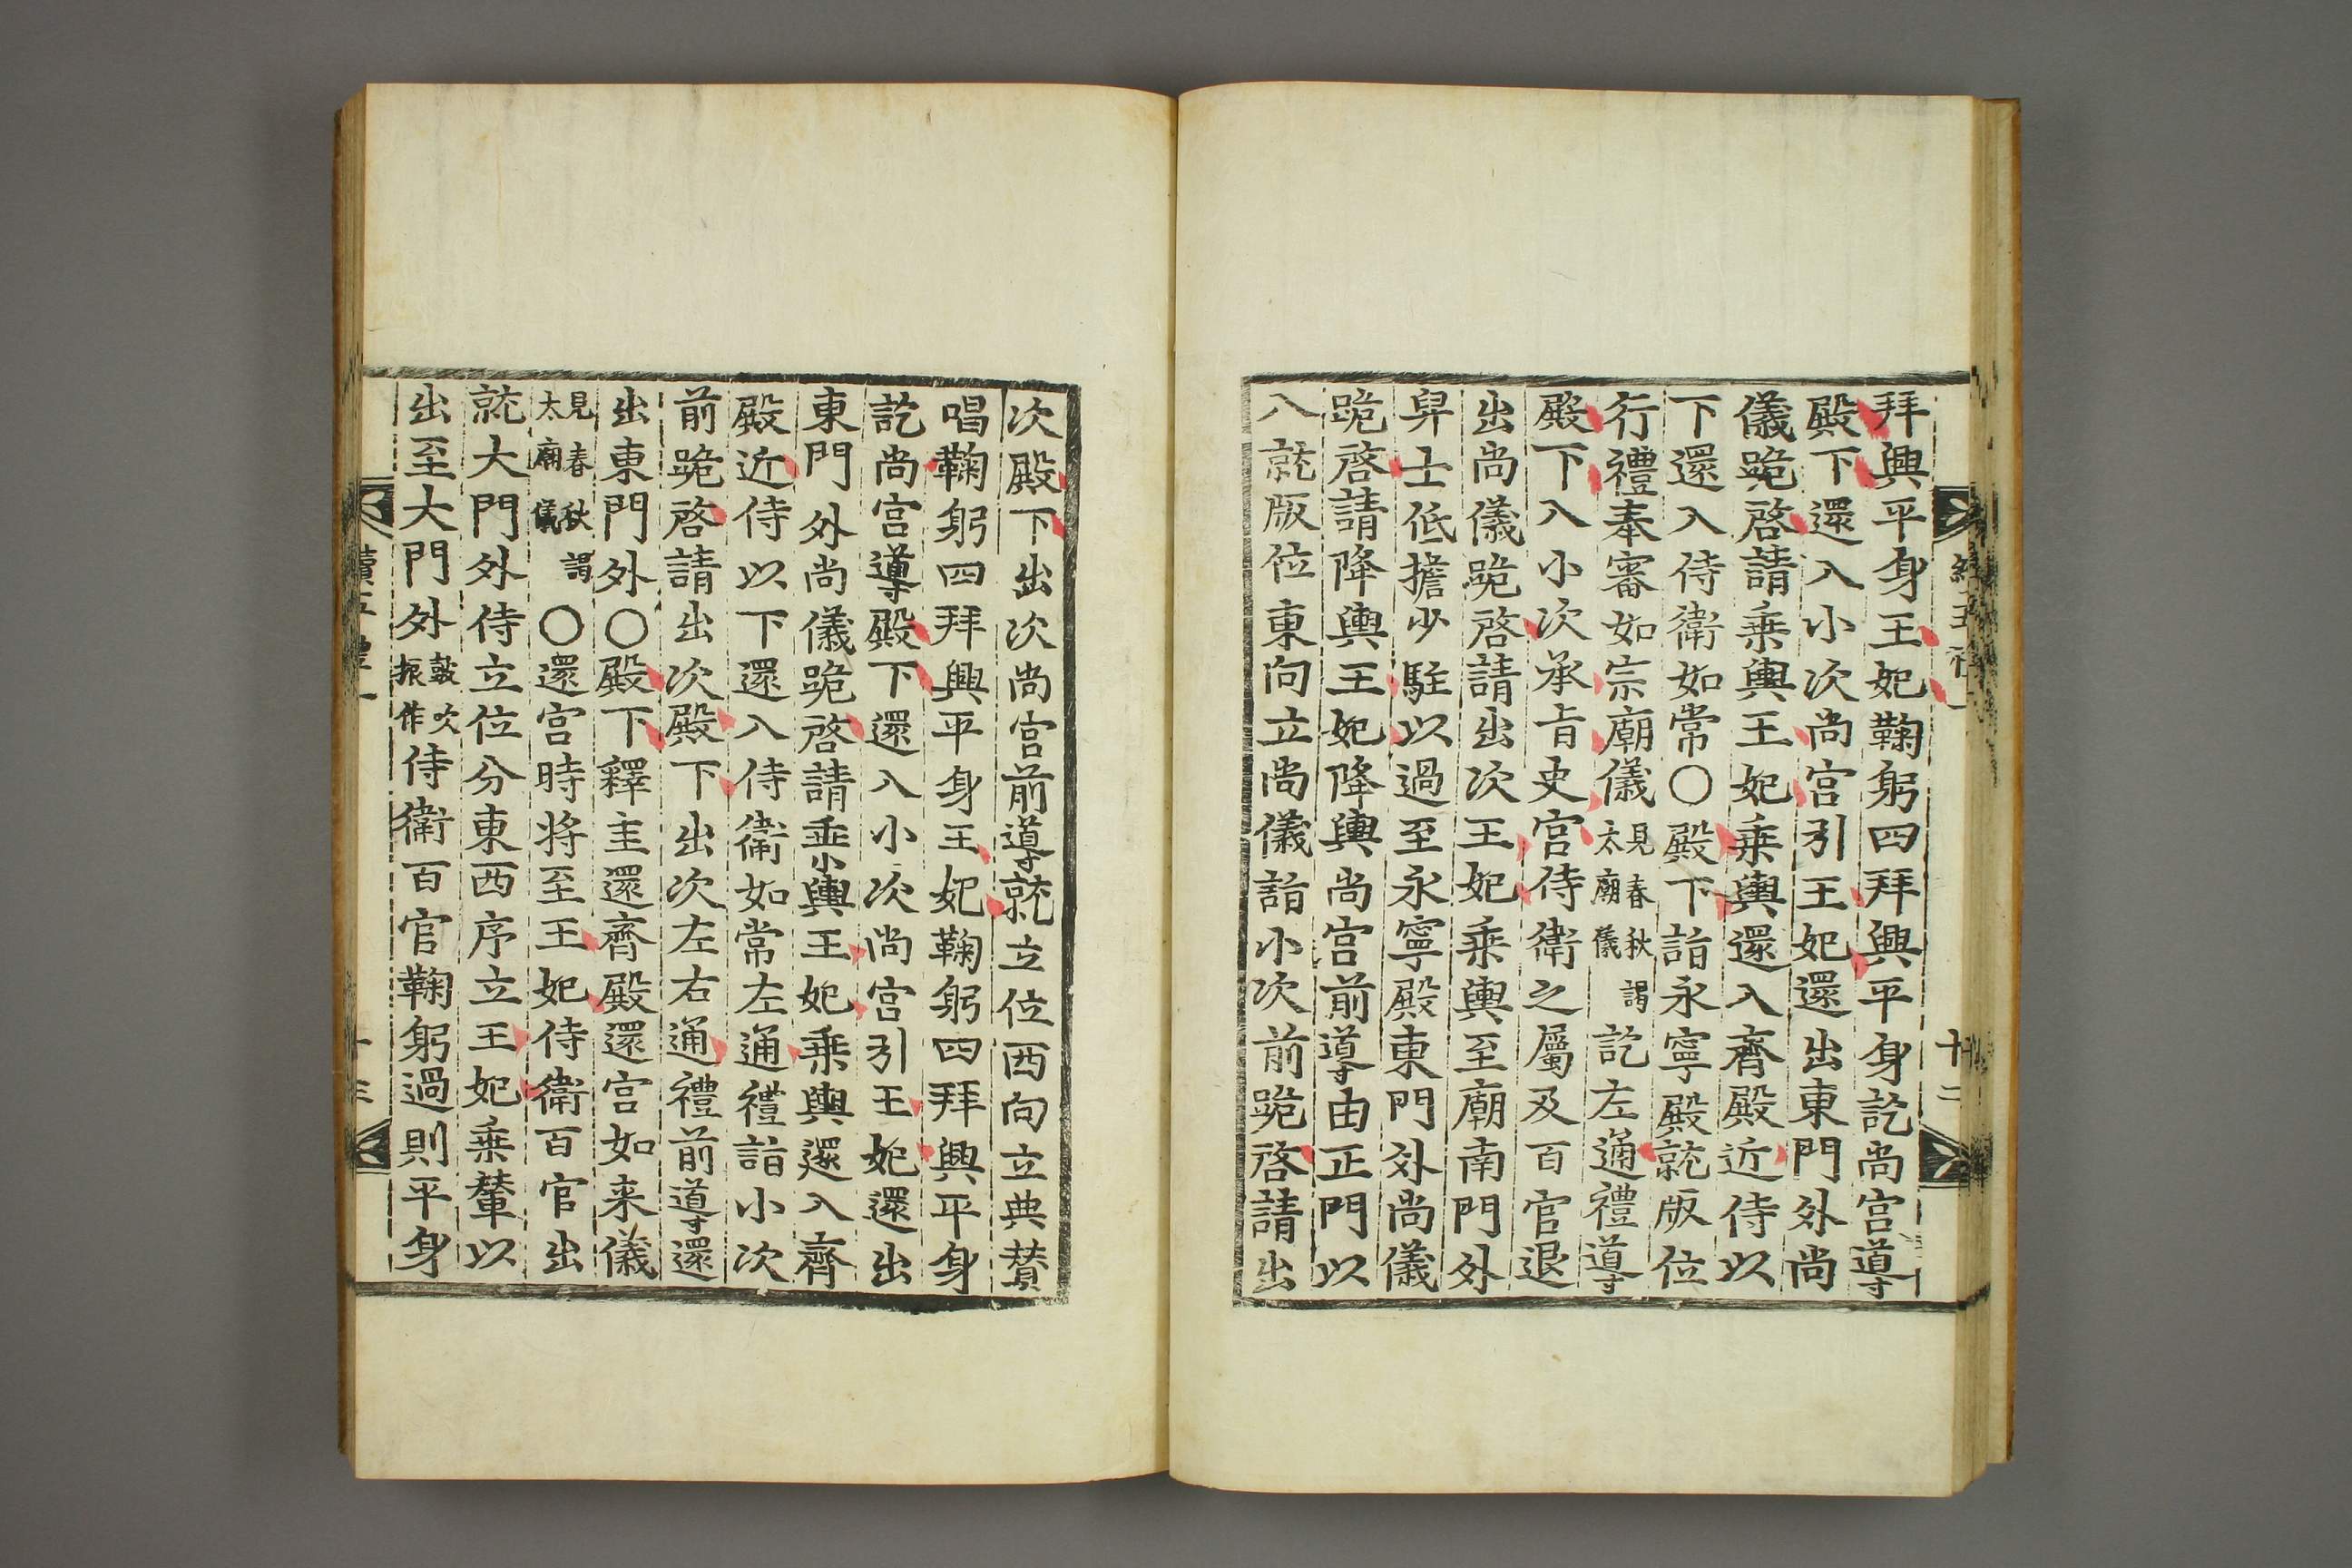 拜興平身王妃鞠躬四拜興平身訖尚宮導
殿下還入小次尚宮引王妃還出東門外尚
儀跪啓請乗輿王妃乗輿還入齊殿近侍以
下還入侍衛如常〇殿下詣永寧殿就版位
行禮奉審如宗廟儀見春秋謁太廟儀訖左通禮導
殿下入小次承旨史官侍衛之屬及百官退
出尚儀跪啓請出次王妃乗輿至廟南門外
舁士低擔少駐以過至永寧殿東門外尚儀
跪啓請降輿王妃降輿尚宮前導由正門以
入就版位東向立尚儀詣小次前跪啓請出
次殿下出次尚宮前導就立位西向立典賛
唱鞠躬四拜興平身王妃鞠躬四拜興平身
訖尚宮導殿下還入小次尚宮引王妃還出
東門外尚儀跪啓請乗小輿王妃乗輿還入齊
殿近侍以下還入侍衛如常左通禮詣小次
前跪啓請出次殿下出次左右通禮前導還
出東門外〇殿下釋圭還齊殿還宮如来儀
見春秋謁太廟儀〇還宮時将至王妃侍衛百官出
就大門外侍立位分東西序立王妃乗輦以
出至大門外鼓吹振作侍衛百官鞠躬過則平身
十二